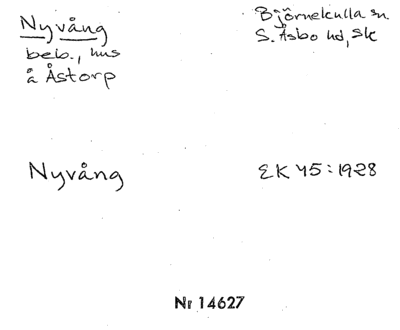 Nyvång
beb., hus
å Åstorp
Björnekulla sn.
S. Åsbo hd, Sk
Nyvång
EK 45:1928
Nr 14627